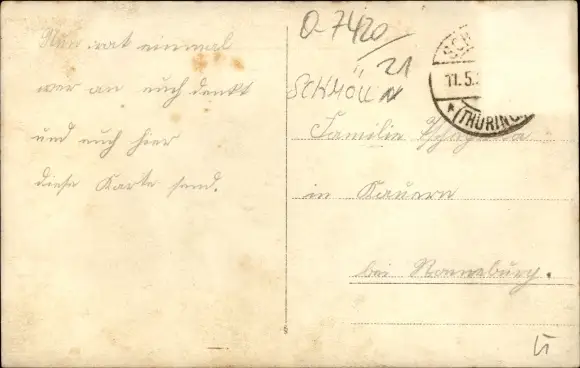 Nun rat einmal
wer an euch denkt
und euch hier
diese Karte send.
O-7420
/21
SCHMÖLLN
SCH
11.5.
(THÜRING.
Familie
in Kauern
bei Ronneburg.